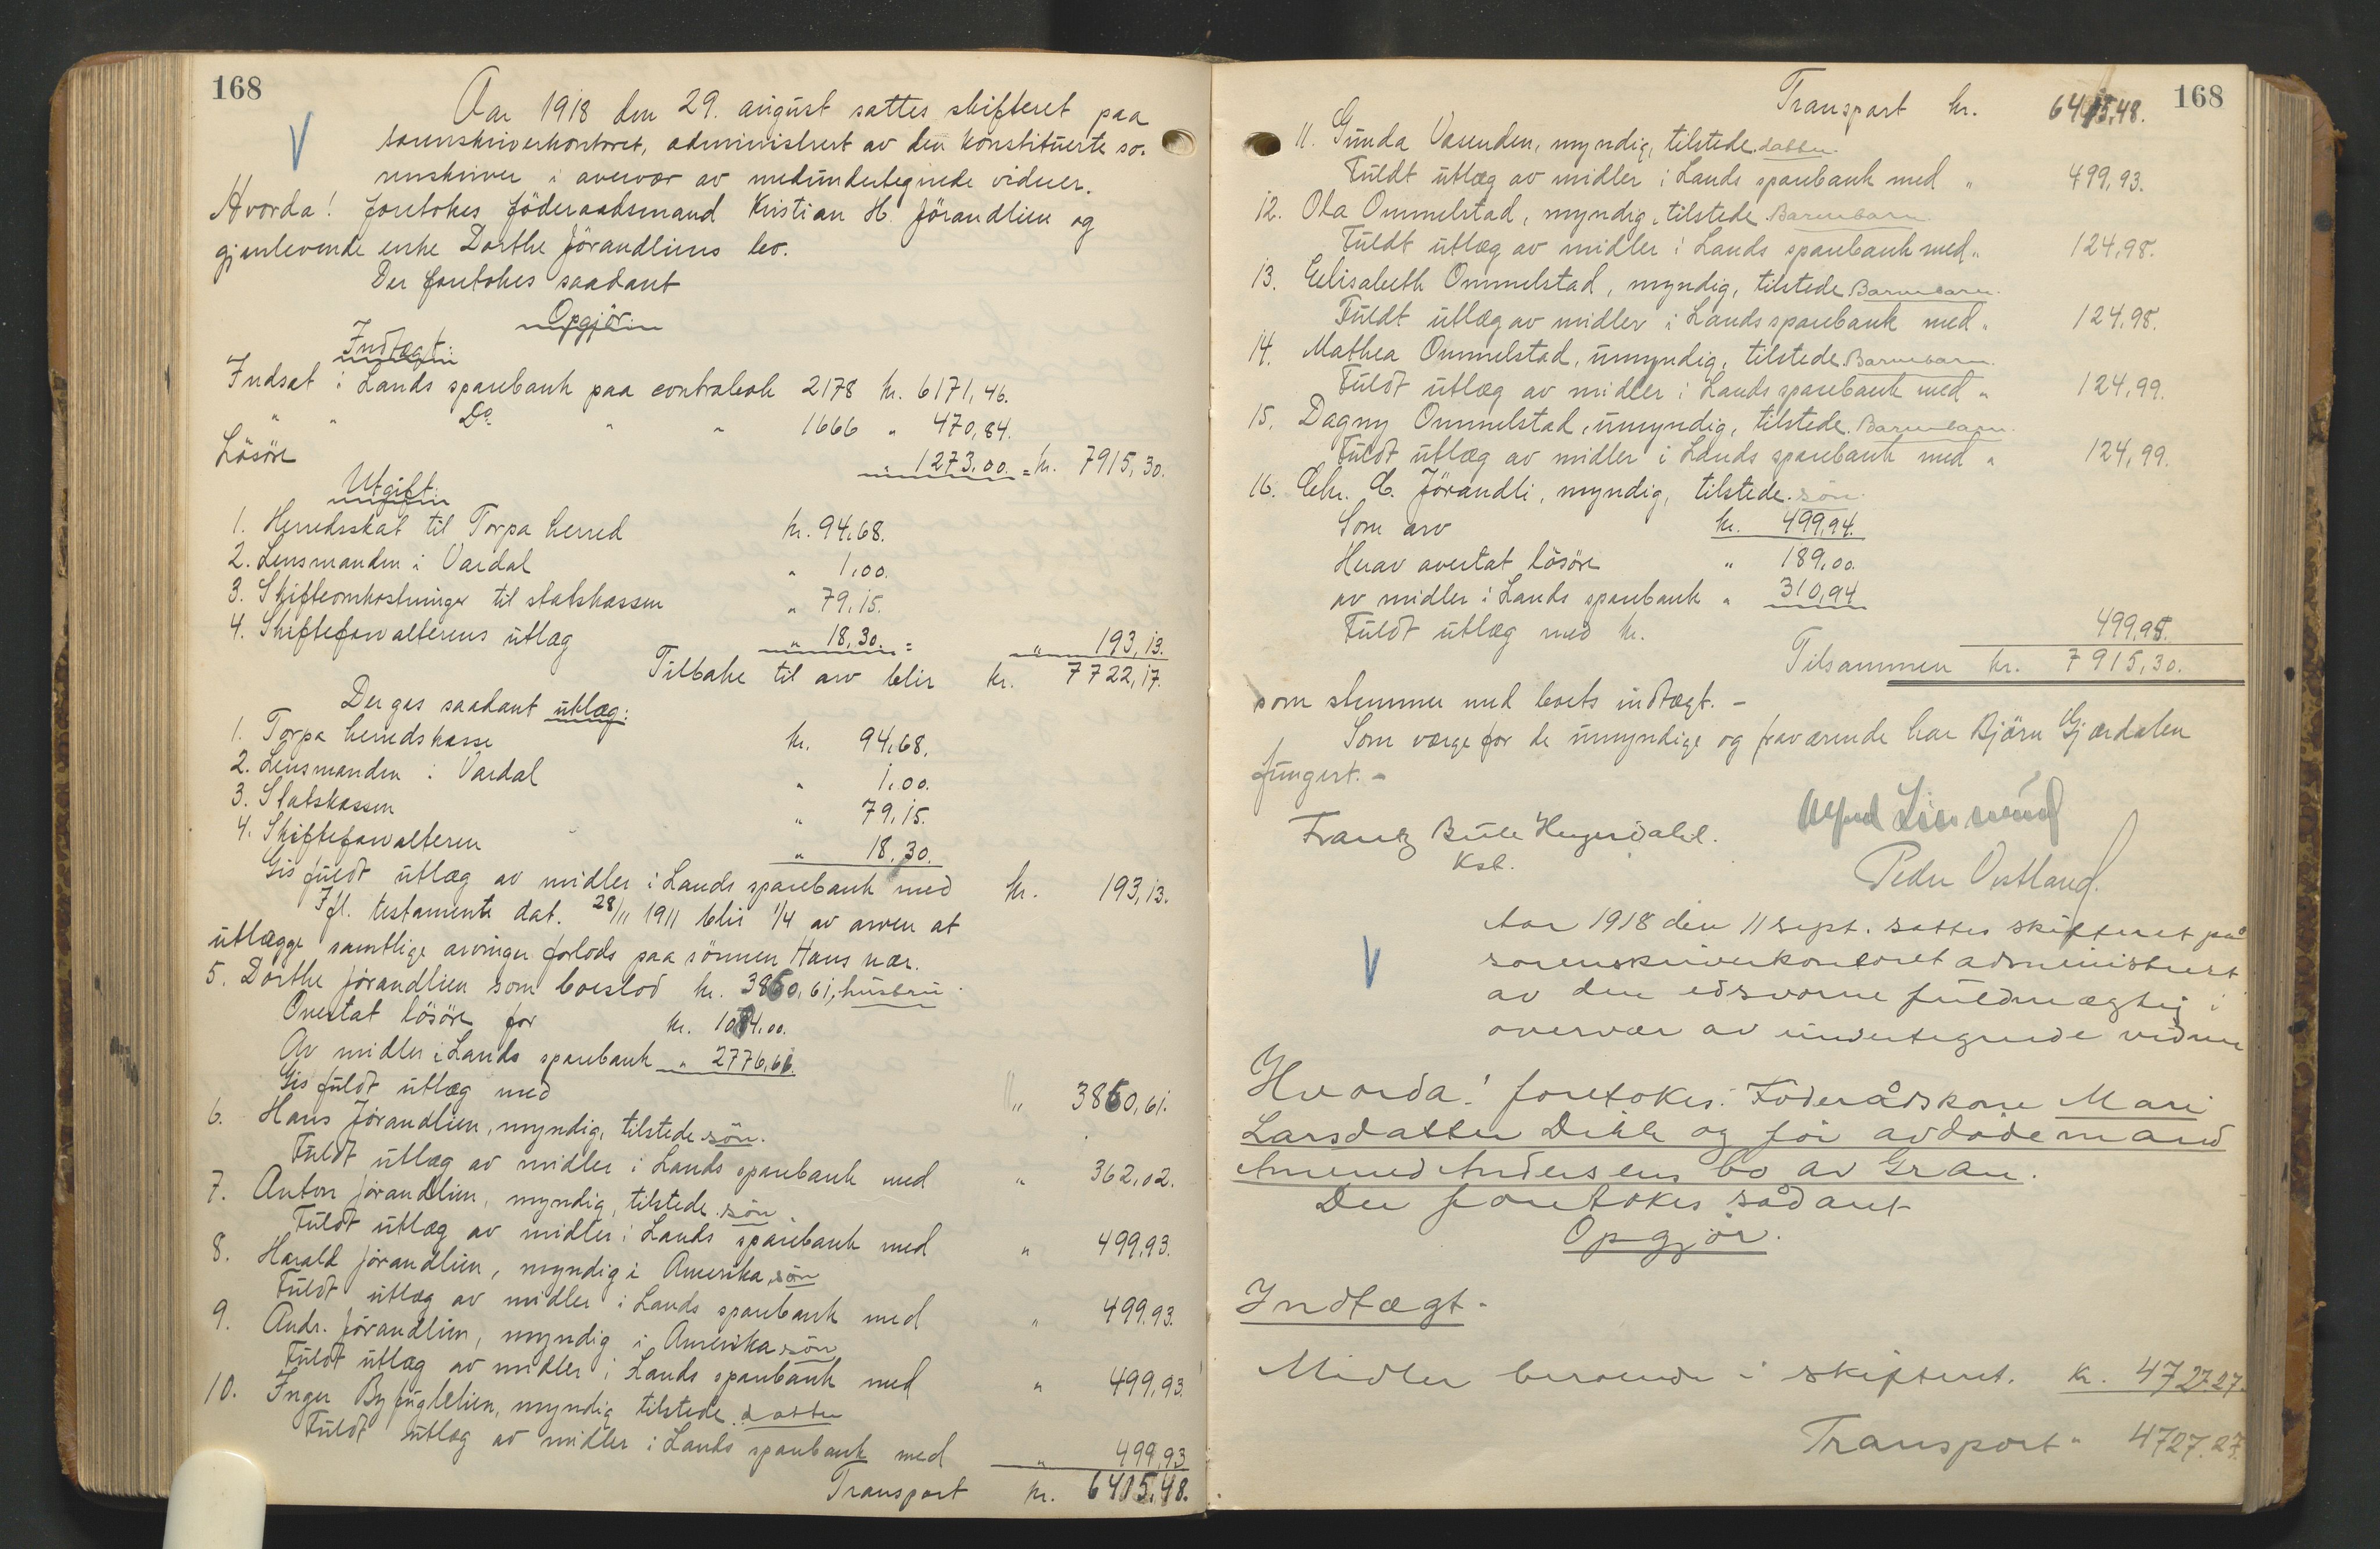 168
Aar 1918 den 29. august sattes skifteret paa
sorenskriverkontoret, administrert av den konstituerte so-
renskriver i overvær av medundertegnede vidner.
Hvorda! foretokes föderaadsmand Kristian H. Jörandlien og
gjenlevende enke Dorthe Jörandliens bo.
Der foretokes saadant
Opgjör:
Indtægt:
Indsat i Lands sparebank paa contrabok 2178 kr. 6171,46.
" " Do " " 1666 " 470,84.
Lösöre " 1273.00. = kr. 7915,30.
Utgift:
1. Herredsskat til Torpa herred kr. 94.68.
2. Lensmanden i Vardal " 1.00.
3. Skifteomkostninger til statskassen " 79.15.
4. Skifteforvalterens utlæg " 18.30. = " 193,13.
Tilbake til arv blir kr. 7722,17.
Der ges saadant utlæg:
1. Torpa herredskasse kr. 94,68.
2. Lensmanden i Vardal " 1.00.
3. Statskassen " 79.15.
4. Skifteforvalteren " 18.30.
Gis fuldt utlæg av midler i Lands sparebank med kr. 193,13.
Ifl. testamente dat. 28/11 1911 blir 1/4 av arven at
utlægge samtlige arvinger forlods paa sönnen Hans nær.
5. Dorthe Jörandlien som boeslod kr. 3860,61, hustru.
Overtat lösöre for kr. 1084.00.
Av midler i Lands sparebank " 2776,61.
Gis fuldt utlæg med " 3860,61.
6. Hans Jörandlien, myndig, tilstede sön.
Fuldt utlæg av midler i Lands sparebank med " 362,02.
7. Anton Jörandlien, myndig, tilstede. sön
Fuldt utlæg av midler i Lands sparebank med " 499,93.
8. Harald Jörandlien, myndig i Amerika, sön
Fuldt utlæg av midler i Lands sparebank med " 499.93.
9. Andr. Jörandlien, myndig i Amerika sön
Fuldt utlæg av midler i Lands sparebank med " 499,93.
10. Inger Byfuglelien, myndig tilstede. datter
Fuldt utlæg av midler i Lands sparebank med " 499,93
Transport kr. 6415.48.
168
Transport kr. 6415,48.
11. Gunda Vasenden, myndig, tilstede. datter.
Fuldt utlæg av midler i Lands sparebank med " 499,93.
12. Ola Ommelstad, myndig, tilstede. Barnebarn.
Fuldt utlæg av midler i Lands sparebank med " 124,98.
13. Elisabeth Ommelstad, myndig, tilstede Barnebarn.
Fuldt utlæg av midler i Lands sparebank med " 124,98.
14. Mathea Ommelstad, umyndig, tilstede Barnebarn.
Fuldt utlæg av midler i Lands sparebank med " 124,99.
15. Dagny Ommelstad, umyndig, tilstede. Barnebarn.
Fuldt utlæg av midler i Lands sparebank med " 124,99.
16. Chr. C. Jörandli, myndig, tilstede. sön.
Som arv kr. 499,94.
Herav overtat lösöre " 189,00.
av midler i Lands sparebank " 310,94
Fuldt utlæg med kr. 499,95.
Tilsammen kr. 7915,30.
som stemmer med boets indtægt. -
Som værge for de umyndige og fraværende har Björn Gjærdalen
fungert. -
Frantz Bull Hegerdahl.
Kst.
Peder Østland.
Aar 1918 den 11 sept. sattes skifteret på
sorenskriverkontoret administrert
av den edsvorne fuldmægtig i
overvær av undertegnede vidner
Hvorda! foretokes: Föderådskone Mari
Larsdatter Dihle og för avdöde mand
Amund Andersens bo av Gran.
Der foretokes sådant
Opgjör.
Indtægt.
Midler beroende i skifteret. Kr. 4727.27.
Transport " 4727.27.